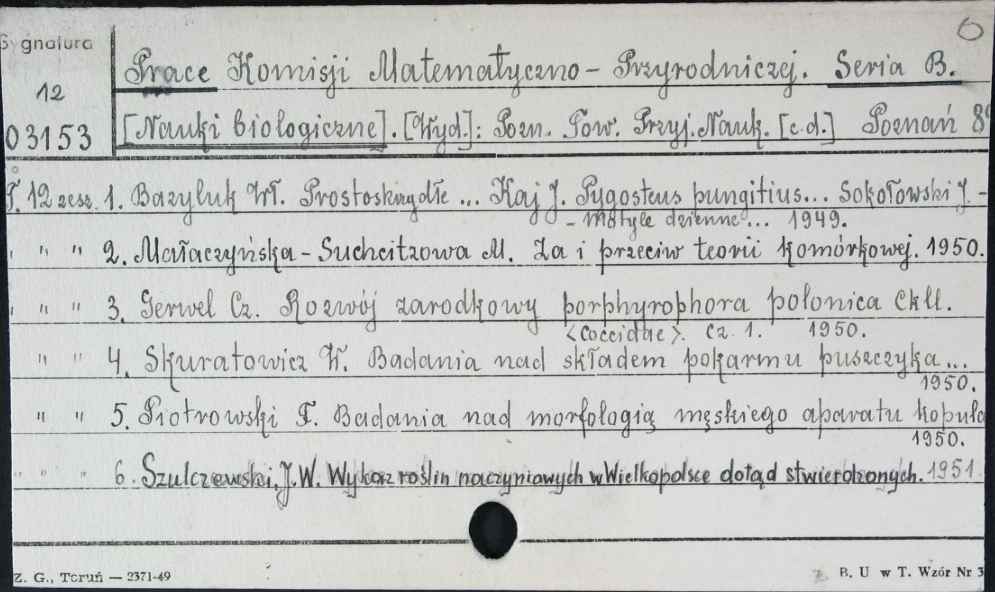 6
Sygnatura
12
03153
Prace Komisji Matematyczno - Przyrodniczej. Seria B.
[Nauki biologiczne]. [Wyd.]: Pozn. Tow. Przyj. Nauk. [c.d.] Poznań 8°
T. 12 zesz. 1. Bazyluk Wł. Prostoskrzydłe ... Kaj J. Pygosteus pungitius... Sokołowski J. -
- Motyle dzienne ... 1949.
" " " 2. Małaczyńska - Suchcitzowa M. Za i przeciw teorii komórkowej. 1950.
" " " 3. Gerwel Cz. Rozwój zarodkowy porphyrophora polonica Ckll.
<Coccidae>. Cz. 1. 1950.
" " 4. Skuratowicz W. Badania nad składem pokarmu puszczyka...
1950.
" " 5. Piotrowski F. Badania nad morfologią męskiego aparatu kopula
1950.
" " " 6. Szulczewski, J. W. Wykaz roślin naczyniowych w Wielkopolsce dotąd stwierdzonych. 1951.
Z. G., Toruń — 2371-49
B. U w T. Wzór Nr 3